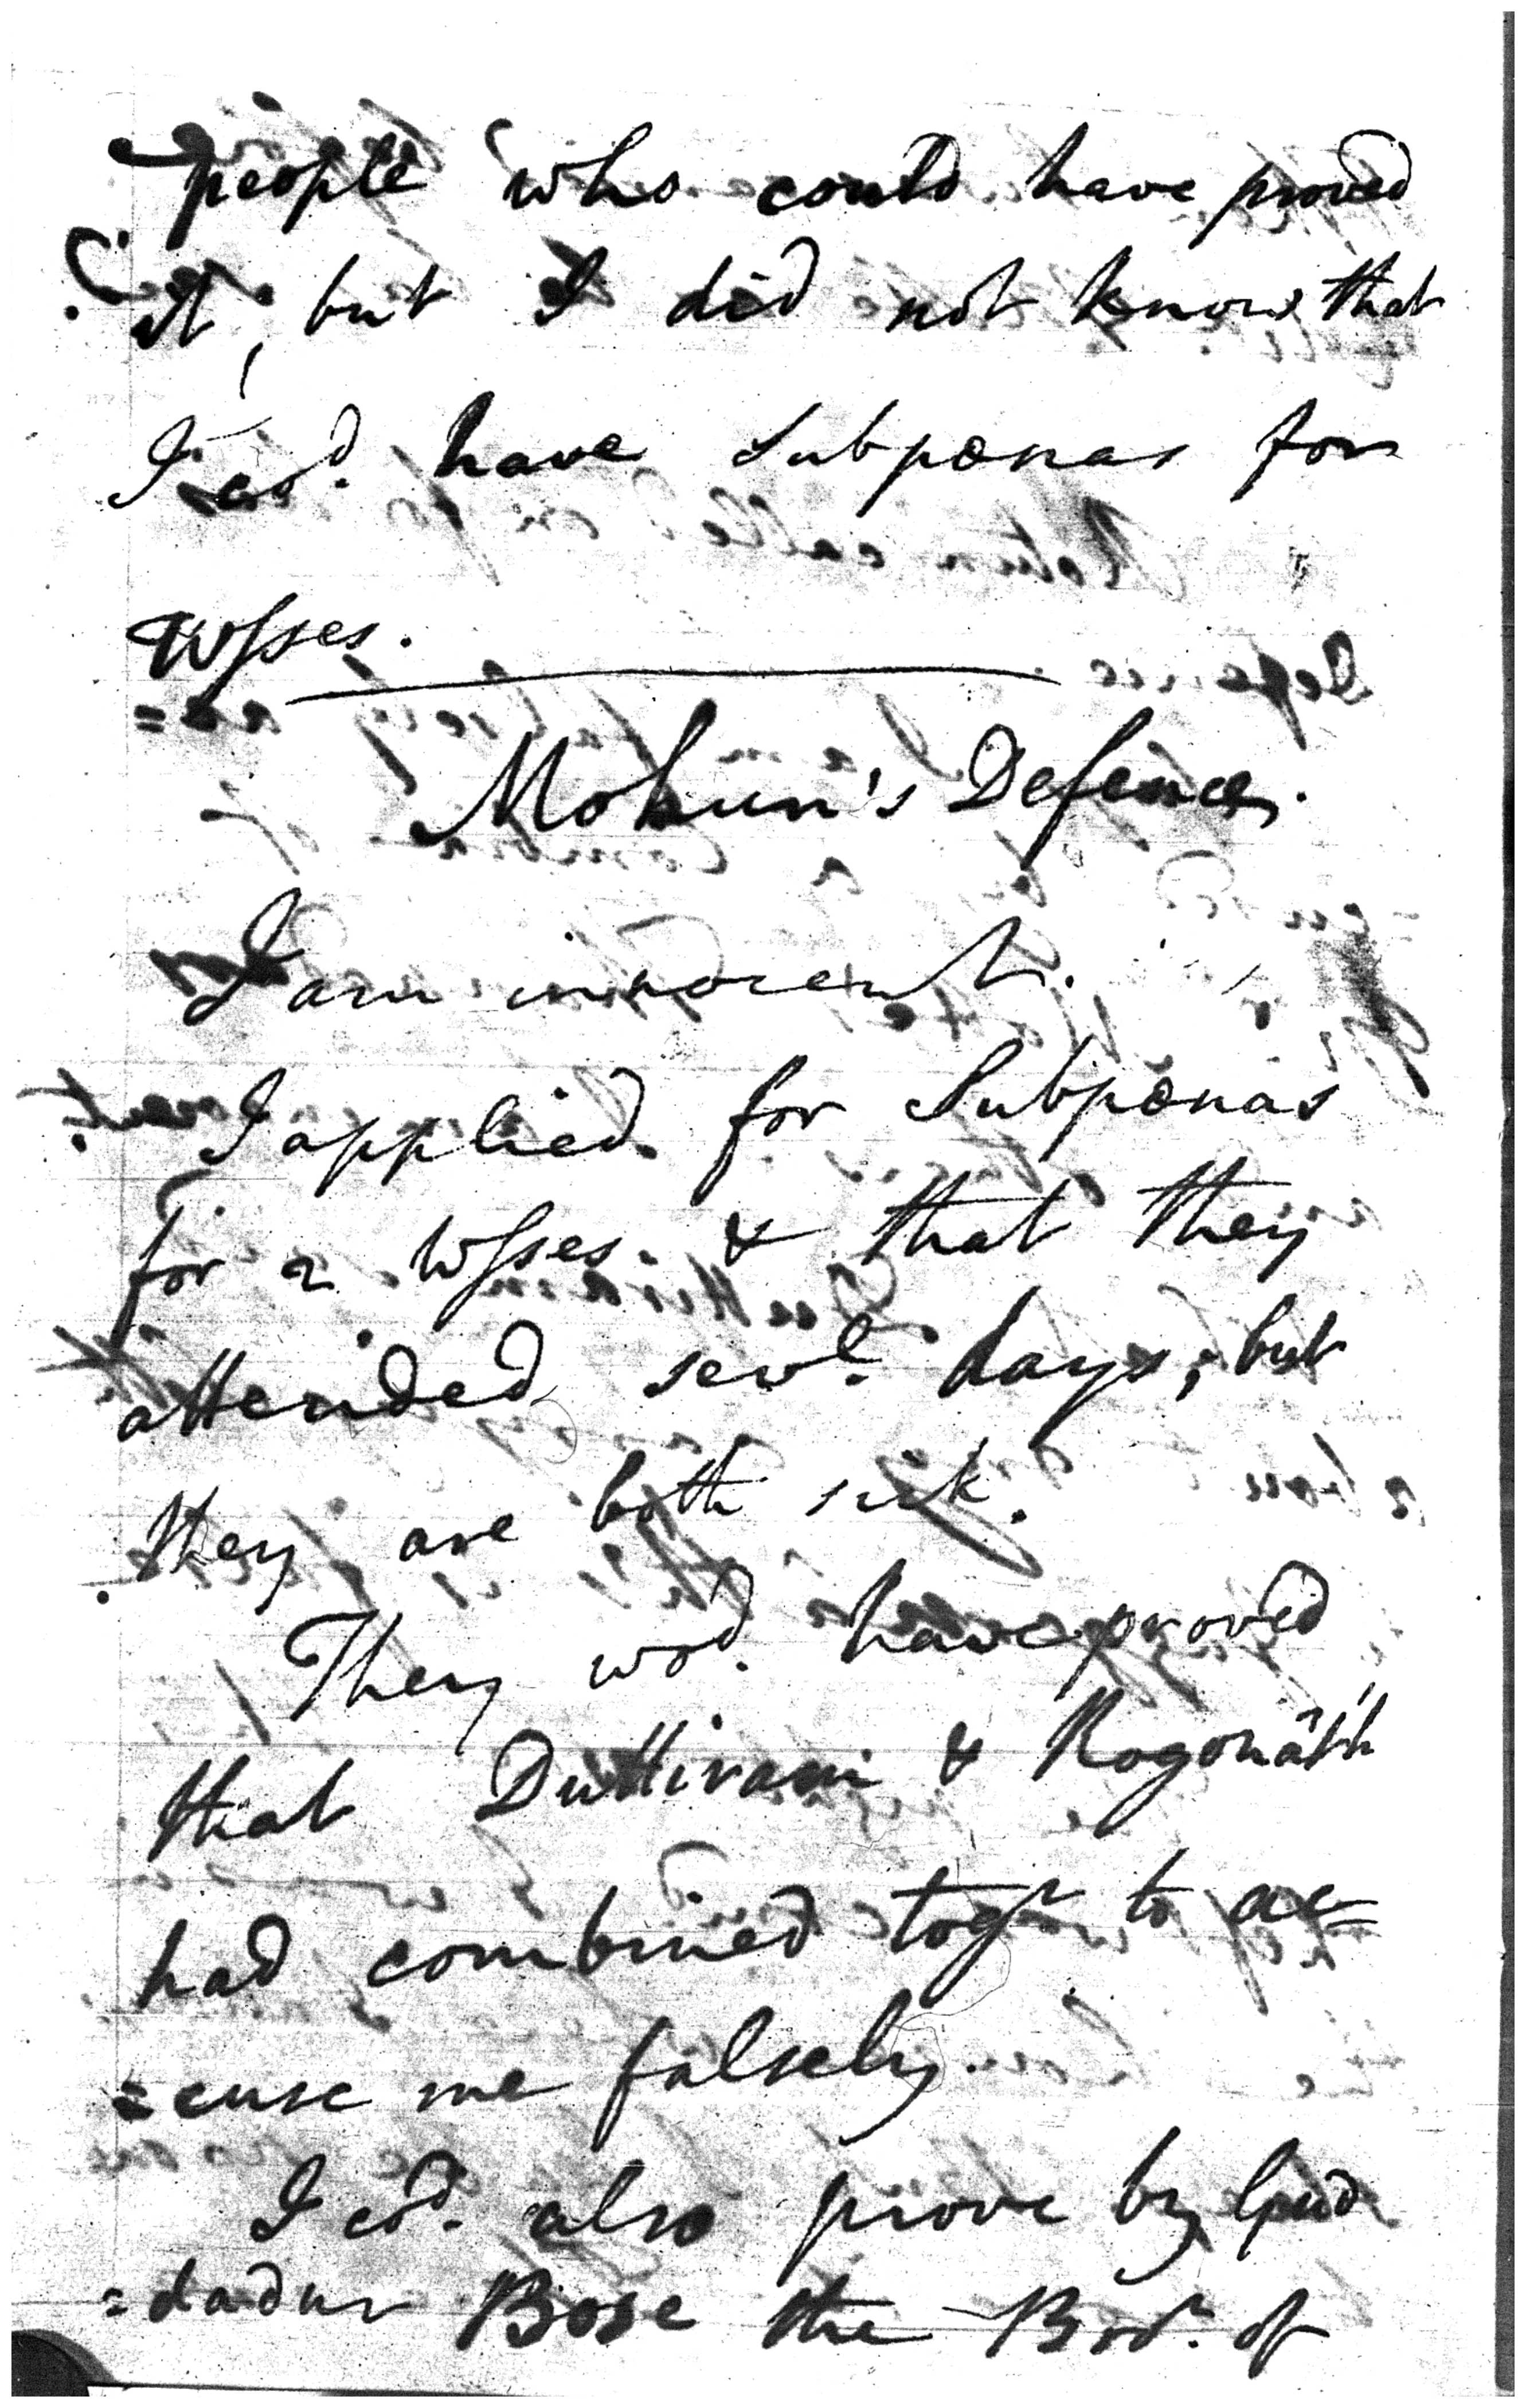 people who could have proved
it, but I did not know that
I cod. have Subpœnas for
Wsses.
Mohun's Defence.
I am innocent.
I applied for Subpœnas
for 2 Wsses. & that they
attended sevl. days, but
they are both sick.
They wod. have proved
that Duttiram & Rogonâth
had combined togr to ac=
=cuse me falsely.
I cod. also prove by
=dadur Bose the Bror. of